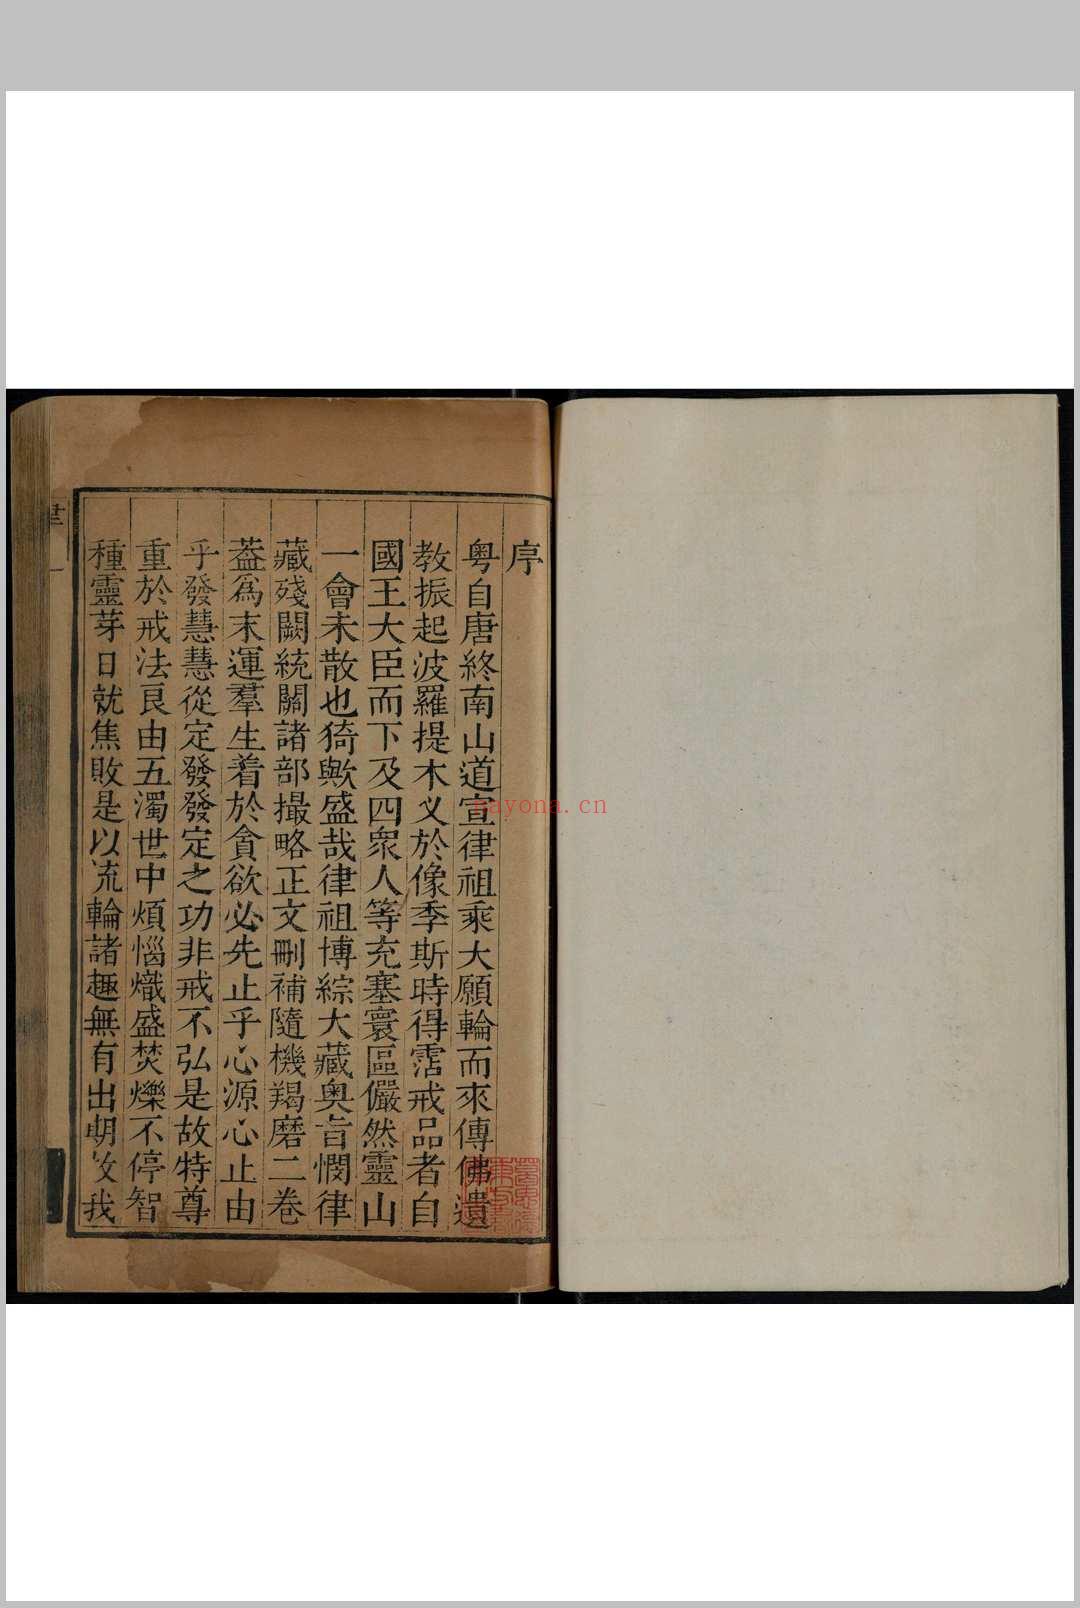 序
粤自唐終南山道宣律祖乘大願輪而來傳佛遺
教振起波羅提木义於像季斯時得霑戒品者自
國王大臣而下及四衆人等充塞寰區儼然靈山
一會未散也猗歟盛哉律祖博綜大藏奥旨憫律
藏殘闕統關諸部撮略正文刪補隨機羯磨二卷
葢爲末運羣生着於貪欲必先止乎心源心止由
乎發慧慧從定發發定之功非戒不弘是故特尊
重於戒法良由五濁世中煩惱熾盛焚爍不停智
種靈芽日就焦敗是以流輪諸趣無有出期故我
nayona.cn